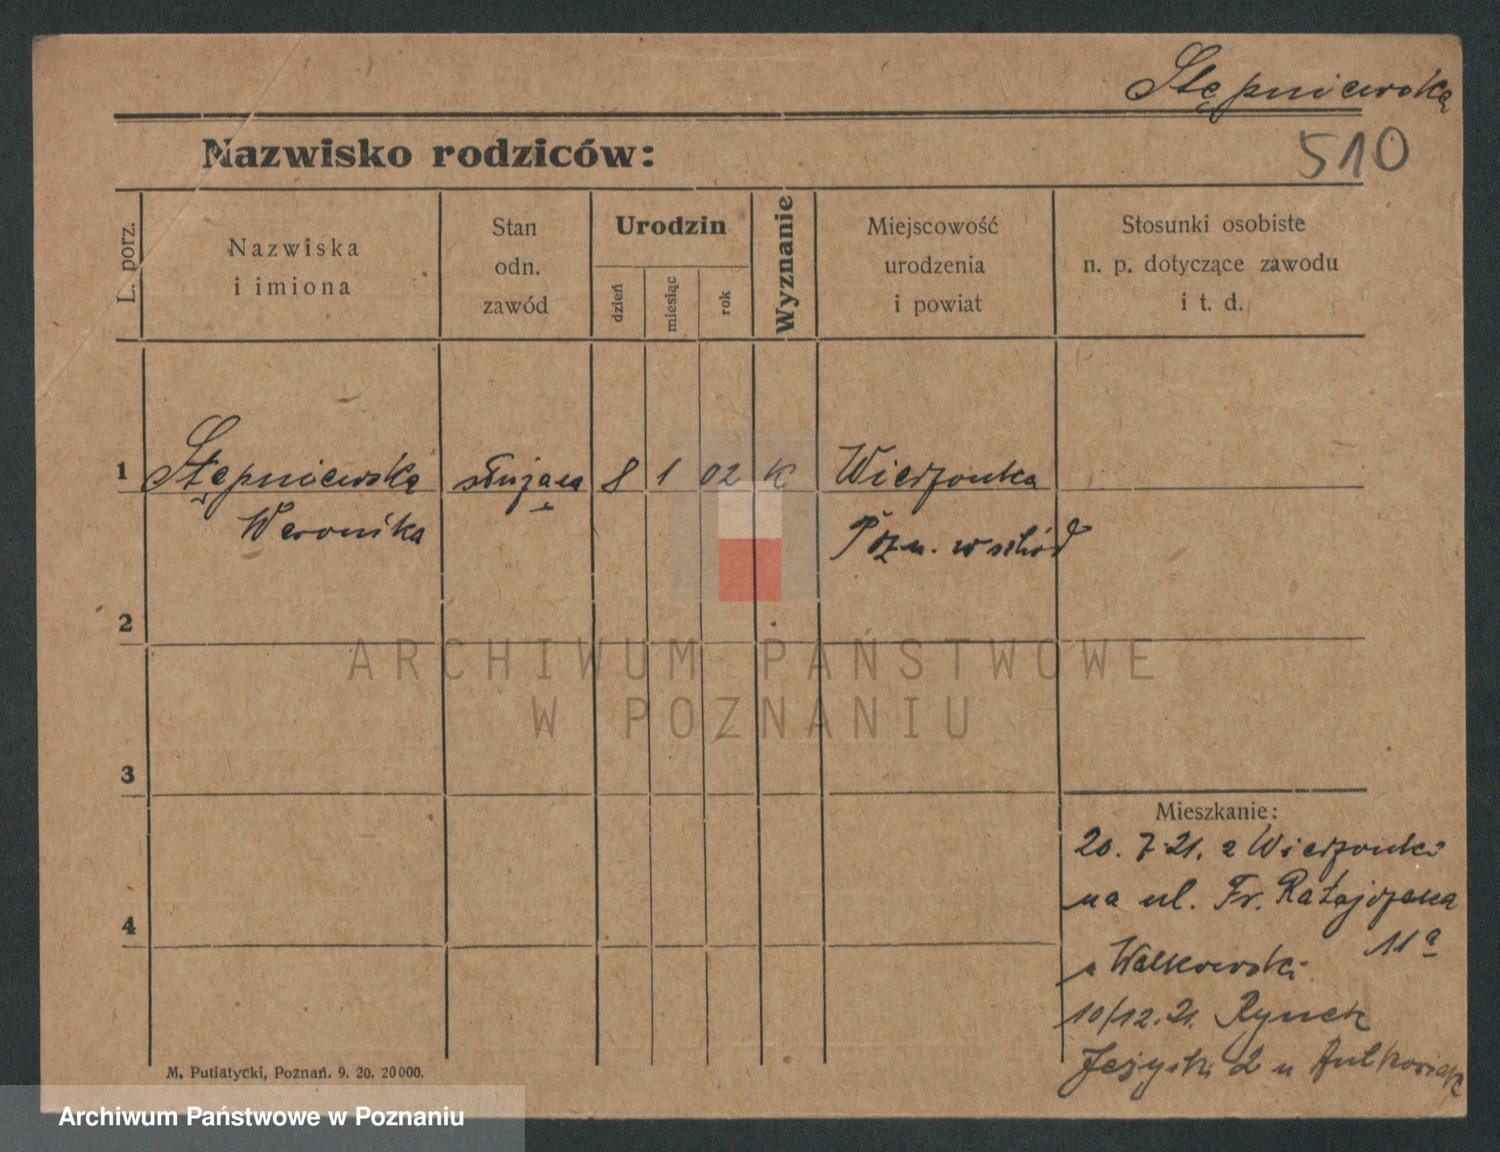 Stępniewska
Nazwisko rodziców:
510
L. porz.
Nazwiska
i imiona
Stan
odn.
zawód
Urodzin
dzień
miesiąc
rok
Wyznanie
Miejscowość
urodzenia
i powiat
Stosunki osobiste
n. p. dotyczące zawodu
i t. d.
1 Stępniewska służąca 8 1 02 K Wierzonka
Weronika Pozn. wschód
2
ARCHIWUM PAŃSTWOWE
W POZNANIU
3
Mieszkanie:
20. 7. 21. z Wierzonki
na ul. Fr. Ratajczaka
11a
Walkowski
4
10/12. 21. Rynek
Jeżycki 2 u
M. Putiatycki, Poznań. 9. 20. 20000.
Archiwum Państwowe w Poznaniu